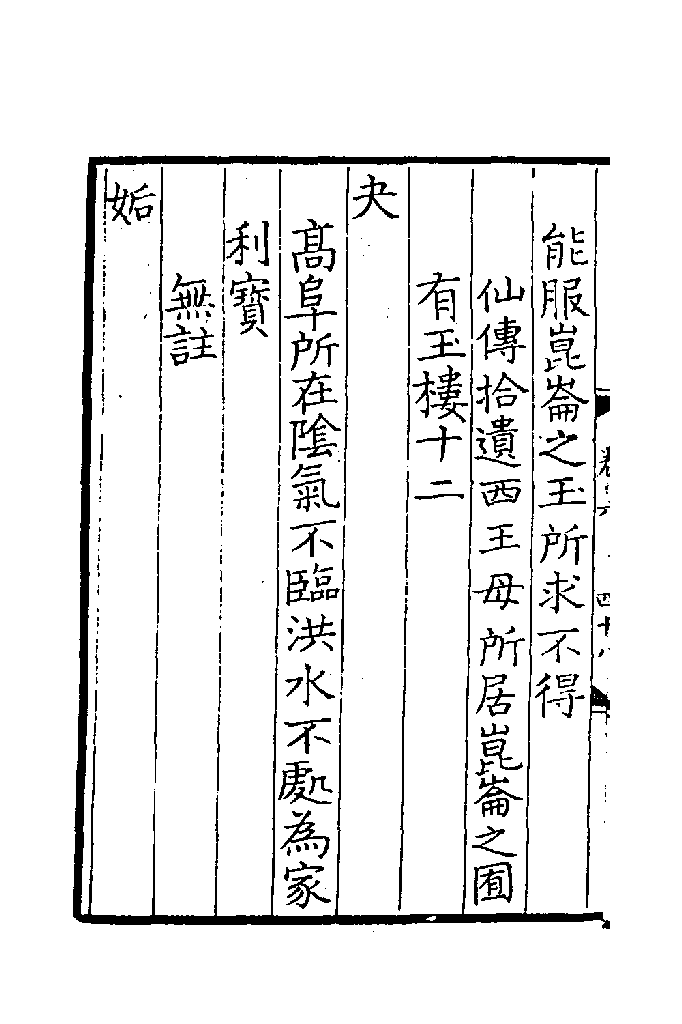 能服崑崙之玉所求不得
仙傳拾遺西王母所居崑崙之囿
有玉樓十二
夬
髙阜所在隂氣不臨洪水不處為家
利寳
無註
姤